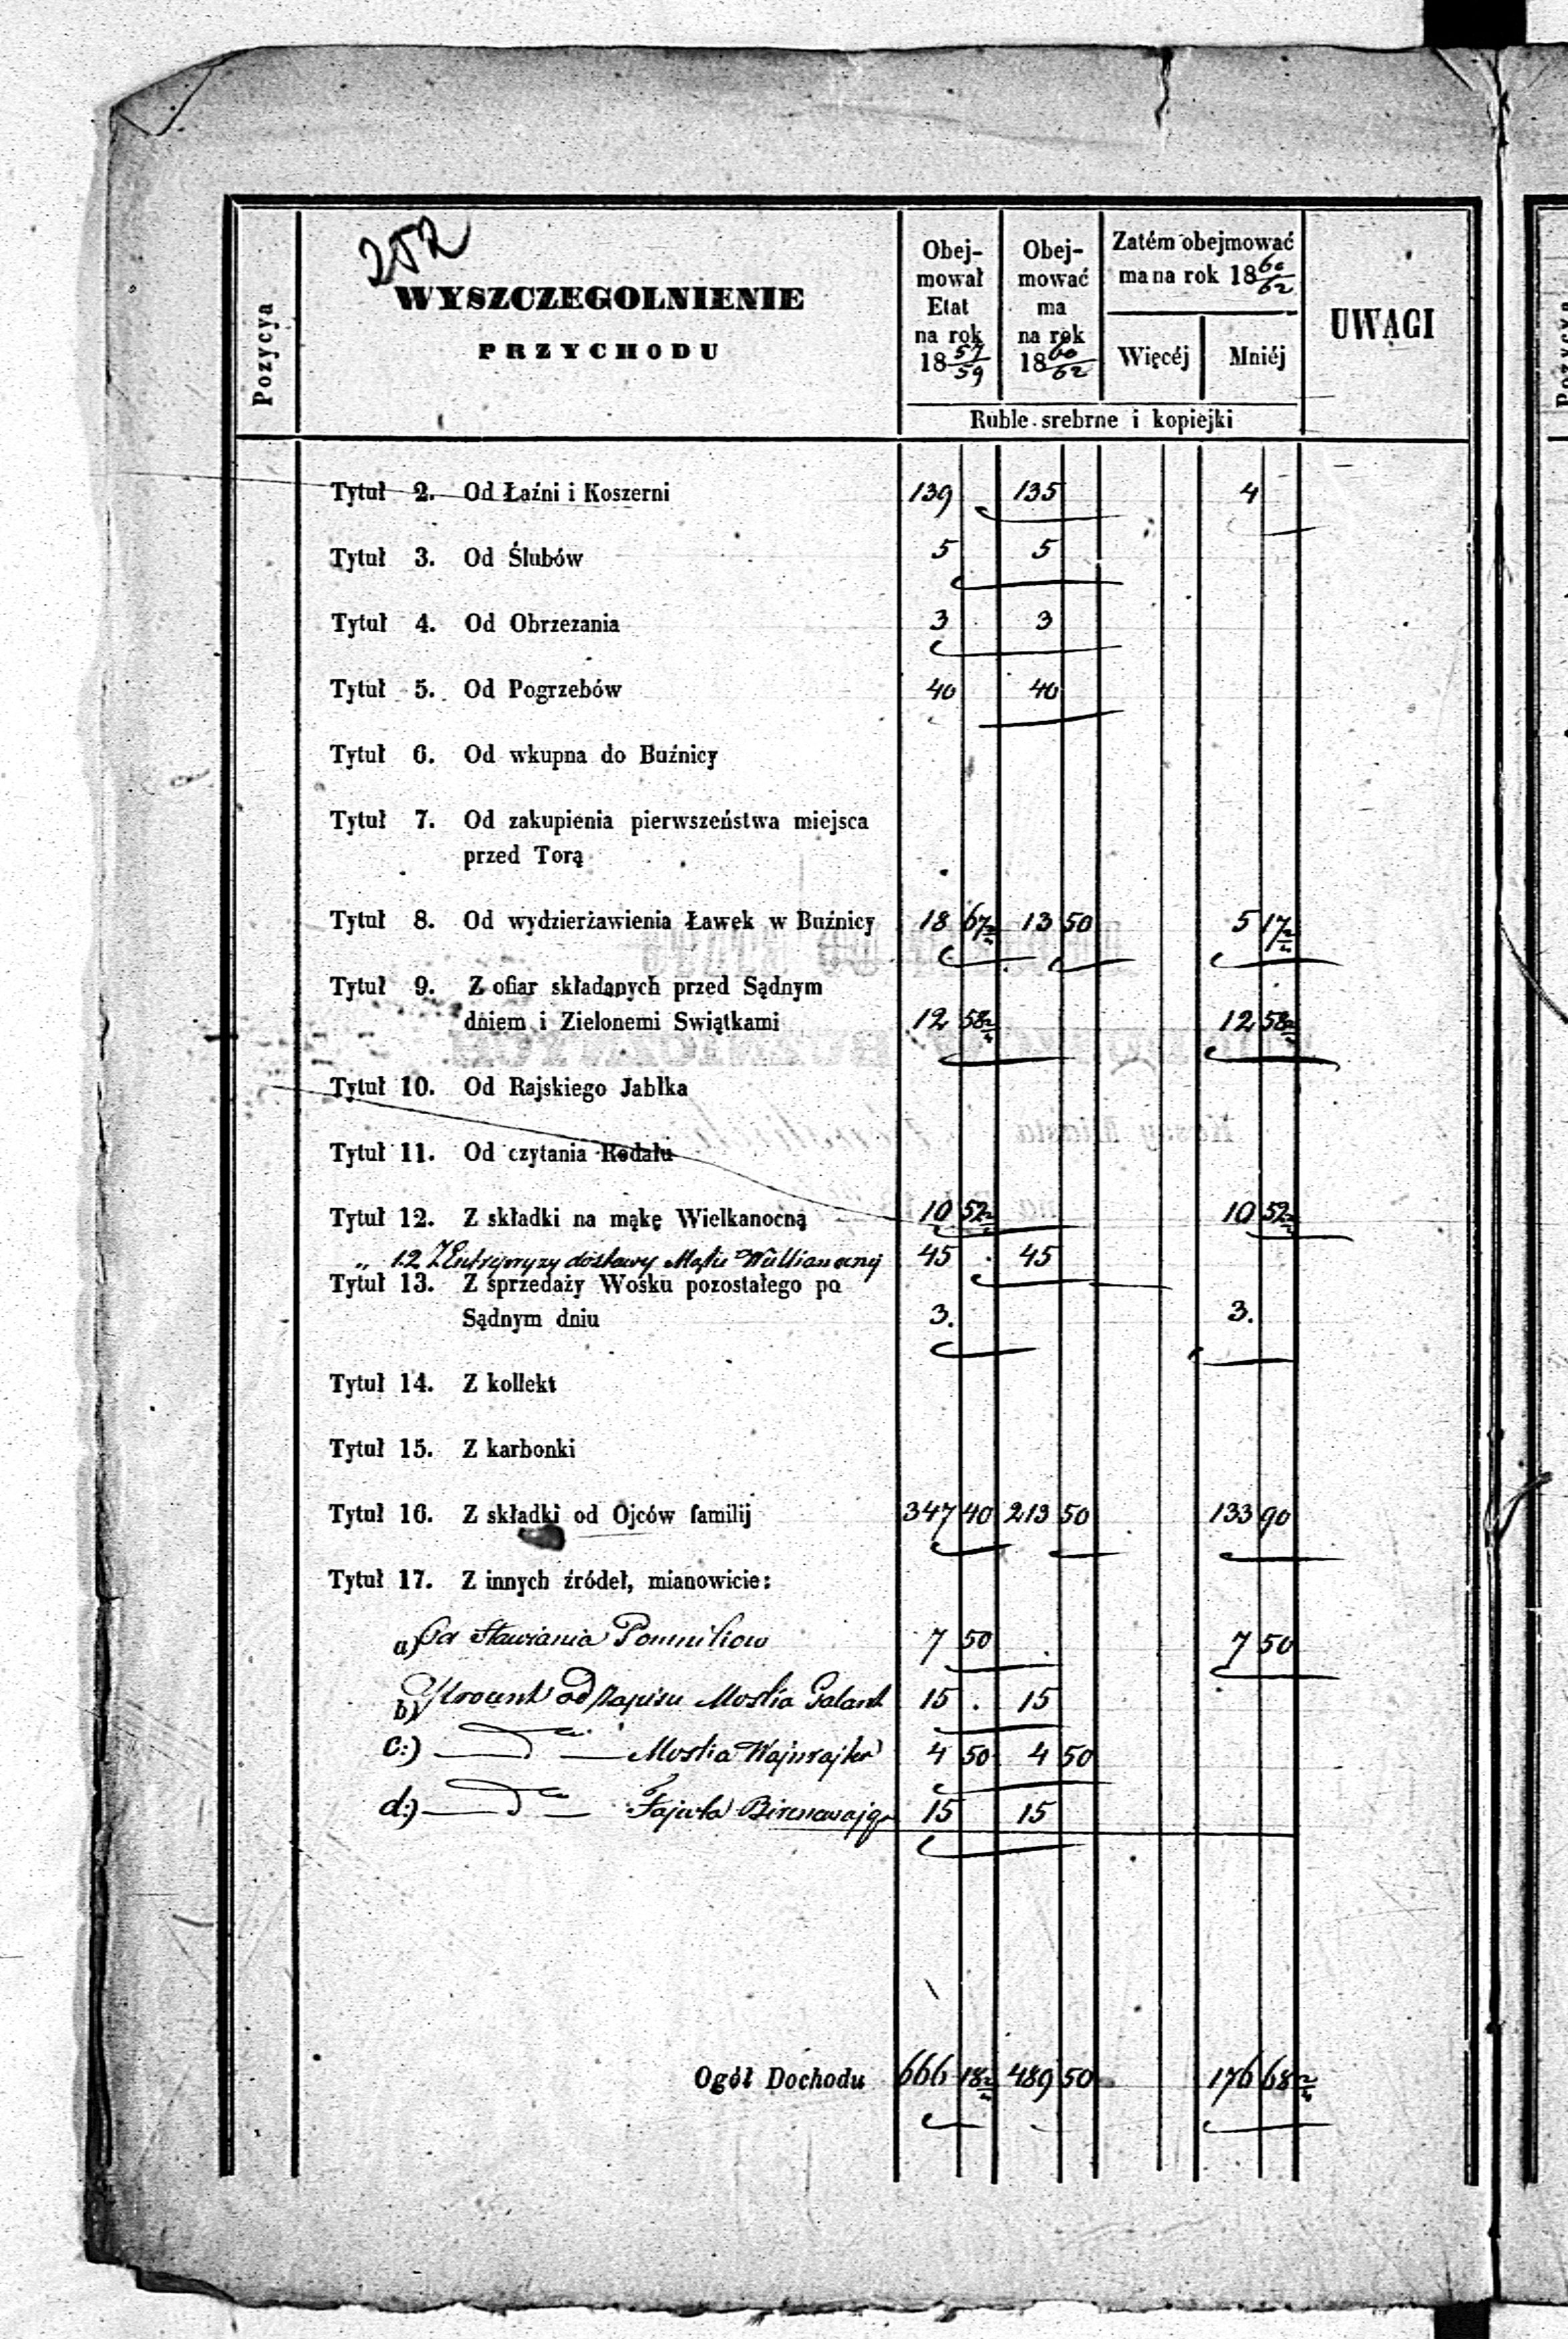 252
Pozycya
WYSZCZEGOLNIENIE
PRZYCHODU
Obej-
mował
Etat
na rok
18 57/59
Obej-
mować
ma
na rok
18 60/62
Zatém obejmować
ma na rok 18 60/62
Więcéj Mniéj
Ruble srebrne i kopiejki
UWAGI
Tytuł 2. Od Łaźni i Koszerni 139 135 4
Tytuł 3. Od Ślubów 5 5
Tytuł 4. Od Obrzezania 3 3
Tytuł 5. Od Pogrzebów 40 40
Tytuł 6. Od wkupna do Buźnicy
Tytuł 7. Od zakupienia pierwszeństwa miejsca
przed Torą
Tytuł 8. Od wydzierżawienia Ławek w Buźnicy 18 67 13 50 5 17
Tytuł 9. Z ofiar składanych przed Sądnym
dniem i Zielonemi Swiątkami 12 58 12 58
Tytuł 10. Od Rajskiego Jabłka
Tytuł 11. Od czytania Rodału
Tytuł 12. Z składki na mąkę Wielkanocną 10 52 10 52
„ 12 Z dostawy Mąki 45 . 45
Tytuł 13. Z sprzedaży Wosku pozostałego po
Sądnym dniu 3. 3.
Tytuł 14. Z kollekt
Tytuł 15. Z karbonki
Tytuł 16. Z składki od Ojców familij 347 40 213 50 133 90
Tytuł 17. Z innych źródeł, mianowicie:
a) Od Stawiania Pomnikow 7 50 7 50
b) Procent od Zapisu Moska Galant 15 . 15
c:) Moska 4 50 4 50
d:) 15 15
Ogół Dochodu 666 18 489 50 176 68